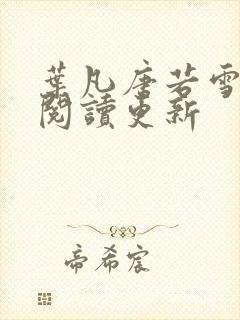 葉凡唐若雪
閱讀更新
帝希宸